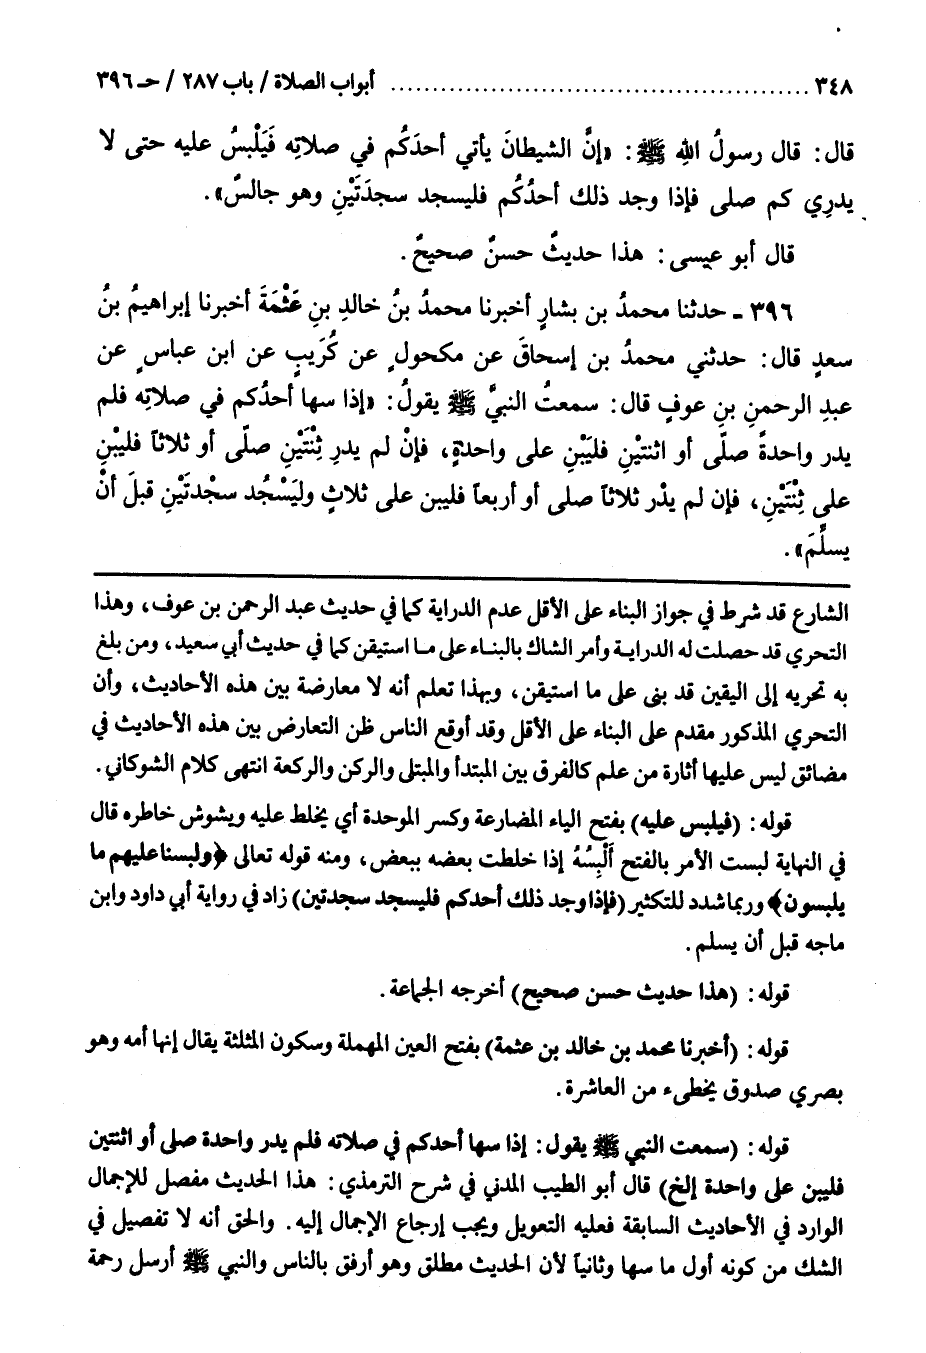 ٣٤٨ ................................................ أبواب الصلاة / باب ٢٨٧ / حـ ٣٩٦
قال: قال رسولُ اللهِ ﷺ: «إنَّ الشيطانَ يأتي أحدَكُم في صلاتِه فَيَلْبسُ عليه حتى لا
يدرِي كم صلى فإذا وجد ذلك أحدُكُم فليسجد سجدَتَيْنِ وهو جالسٌ».
قال أبو عيسى: هذا حديثٌ حسنٌ صحيحٌ.
٣٩٦ ـ حدثنا محمدُ بن بشارٍ أخبرنا محمدُ بنُ خالدِ بنِ عَثْمَةَ أخبرنا إبراهيمُ بنُ
سعدٍ قال: حدثني محمدُ بن إسحاقَ عن مكحولٍ عن كُرَيبٍ عن ابن عباسٍ عن
عبدِ الرحمنِ بنِ عوفٍ قال: سمعتُ النبيَّ ﷺ يقولُ: «إذا سها أحدُكم في صلاتِه فلم
يدر واحدةً صلّى أو اثنتيْنِ فليَبْنِ على واحدةٍ، فإنْ لم يدرِ ثِنْتَيْنِ صلّى أو ثلاثاً فليَبْنِ
على ثِنْتَيْنِ، فإن لم يدْر ثلاثاً صلى أو أربعاً فليبن على ثلاثٍ وليَسْجُد سجْدتَيْنِ قبلَ أنْ
يسلِّمَ».
الشارع قد شرط في جواز البناء على الأقل عدم الدراية كما في حديث عبد الرحمن بن عوف، وهذا
التحري قد حصلت له الدراية وأمر الشاك بالبناء على ما استيقن كما في حديث أبي سعيد، ومن بلغ
به تحريه إلى اليقين قد بنى على ما استيقن، وبهذا تعلم أنه لا معارضة بين هذه الأحاديث، وأن
التحري المذكور مقدم على البناء على الأقل وقد أوقع الناس ظن التعارض بين هذه الأحاديث في
مضائق ليس عليها أثارة من علم كالفرق بين المبتدأ والمبتلى والركن والركعة انتهى كلام الشوكاني.
قوله: (فيلبس عليه) بفتح الياء المضارعة وكسر الموحدة أي يخلط عليه ويشوش خاطره قال
في النهاية لبست الأمر بالفتح أَلْبِسُهُ إذا خلطت بعضه ببعض، ومنه قوله تعالى ﴿ولبسنا عليهم ما
يلبسون﴾ وربما شدد للتكثير (فإذا وجد ذلك أحدكم فليسجد سجدتين) زاد في رواية أبي داود وابن
ماجه قبل أن يسلم.
قوله: (هذا حديث حسن صحيح) أخرجه الجماعة.
قوله: (أخبرنا محمد بن خالد بن عثمة) بفتح العين المهملة وسكون المثلثة يقال إنها أمه وهو
بصري صدوق يخطىء من العاشرة.
قوله: (سمعت النبي ﷺ يقول: إذا سها أحدكم في صلاته فلم يدر واحدة صلى أو اثنتين
فليبن على واحدة إلخ) قال أبو الطيب المدني في شرح الترمذي: هذا الحديث مفصل للإجمال
الوارد في الأحاديث السابقة فعليه التعويل ويجب إرجاع الإجمال إليه. والحق أنه لا تفصيل في
الشك من كونه أول ما سها وثانياً لأن الحديث مطلق وهو أرفق بالناس والنبي ﷺ أرسل رحمة